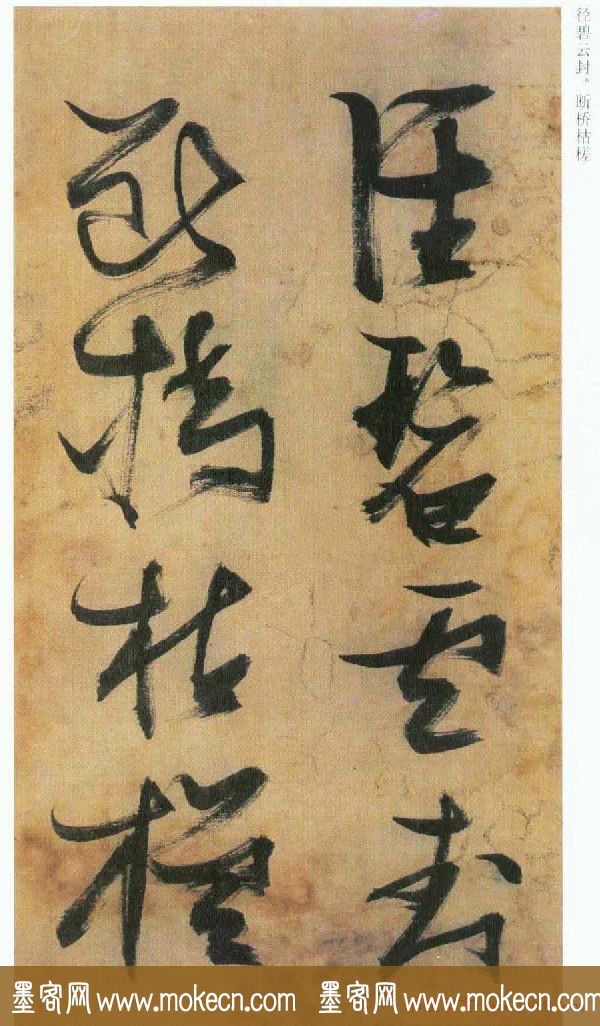 径碧云封。断桥枯槎
径碧雲封
斷橋枯槎
墨客网 www.mokecn.com 墨客网 www.mokecn.com